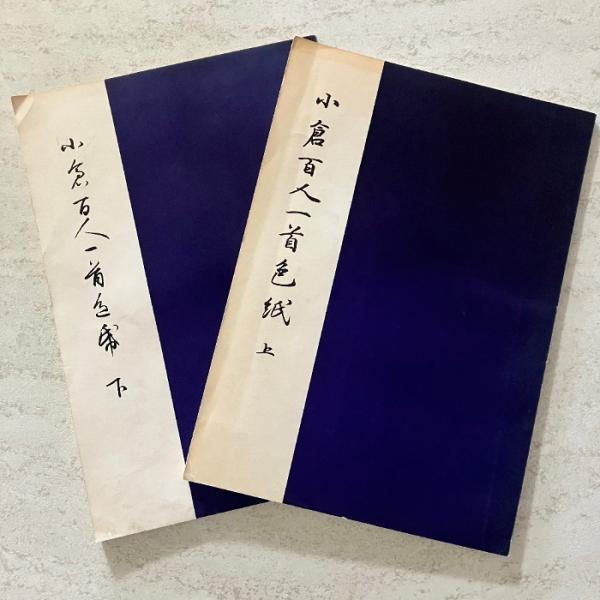 小倉百人一首色紙 上
小倉百人一首色帋 下